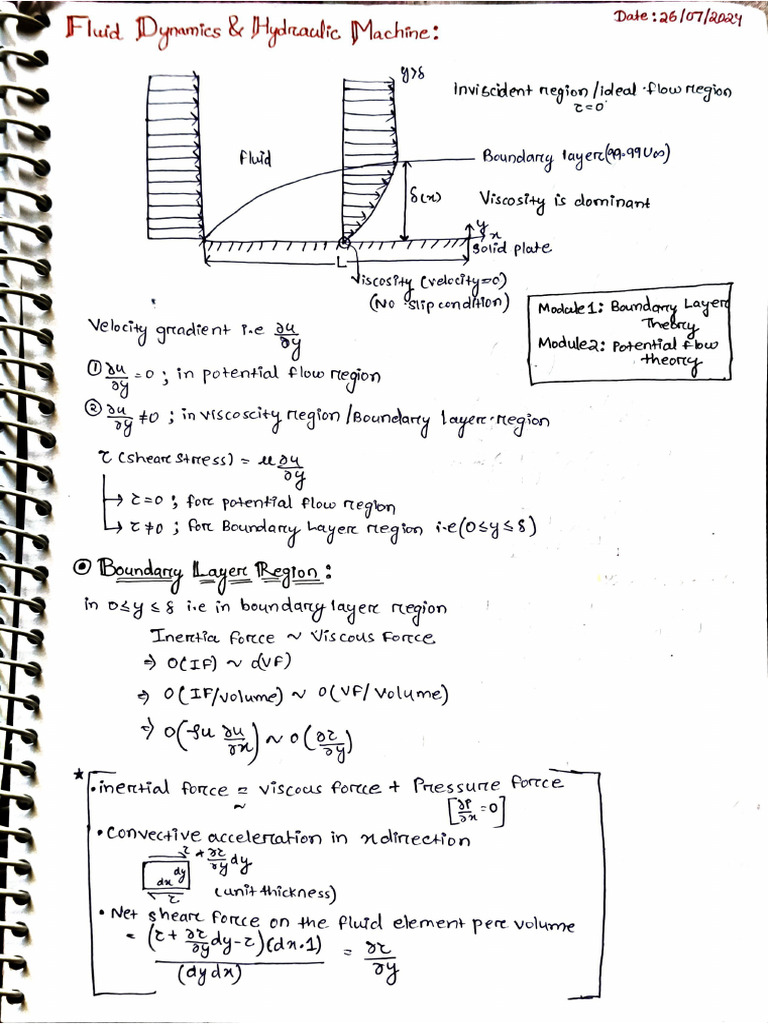 Fluid Dynamics & Hydraulic Machine:
Date: 26/07/2024
y>δ
Inviscident region/ideal flow region
τ=0
Fluid
Boundary layer(99.99U∞)
δ(x)
Viscosity is dominant
y
x
Solid plate
L
Viscosity (velocity=0)
(No slip condition)
Module1: Boundary Layer
Theory
Module2: Potential flow
theory
Velocity gradient i.e ∂u/∂y
① ∂u/∂y = 0 ; in potential flow region
② ∂u/∂y ≠0 ; in viscoscity region/Boundary layer region
τ (shear stress) = μ ∂u/∂y
→ τ=0 ; for potential flow region
→ τ≠0 ; for Boundary Layer region i.e(0≤y≤δ)
Boundary Layer Region:
in 0≤y≤δ i.e in boundary layer region
Inertia force ~ Viscous Force
⇒ O(IF) ~ O(VF)
⇒ O(IF/volume) ~ O(VF/Volume)
⇒ O(ρu ∂u/∂x) ~ O(∂τ/∂y)
* • inertial force ≃ viscous force + Pressure force
[∂P/∂x = 0]
• Convective acceleration in x direction
τ + ∂τ/∂y dy
dy
dx
τ
(unit thickness)
• Net shear force on the fluid element per volume
= (τ + ∂τ/∂y dy - τ)(dx·1)/(dy dx) = ∂τ/∂y